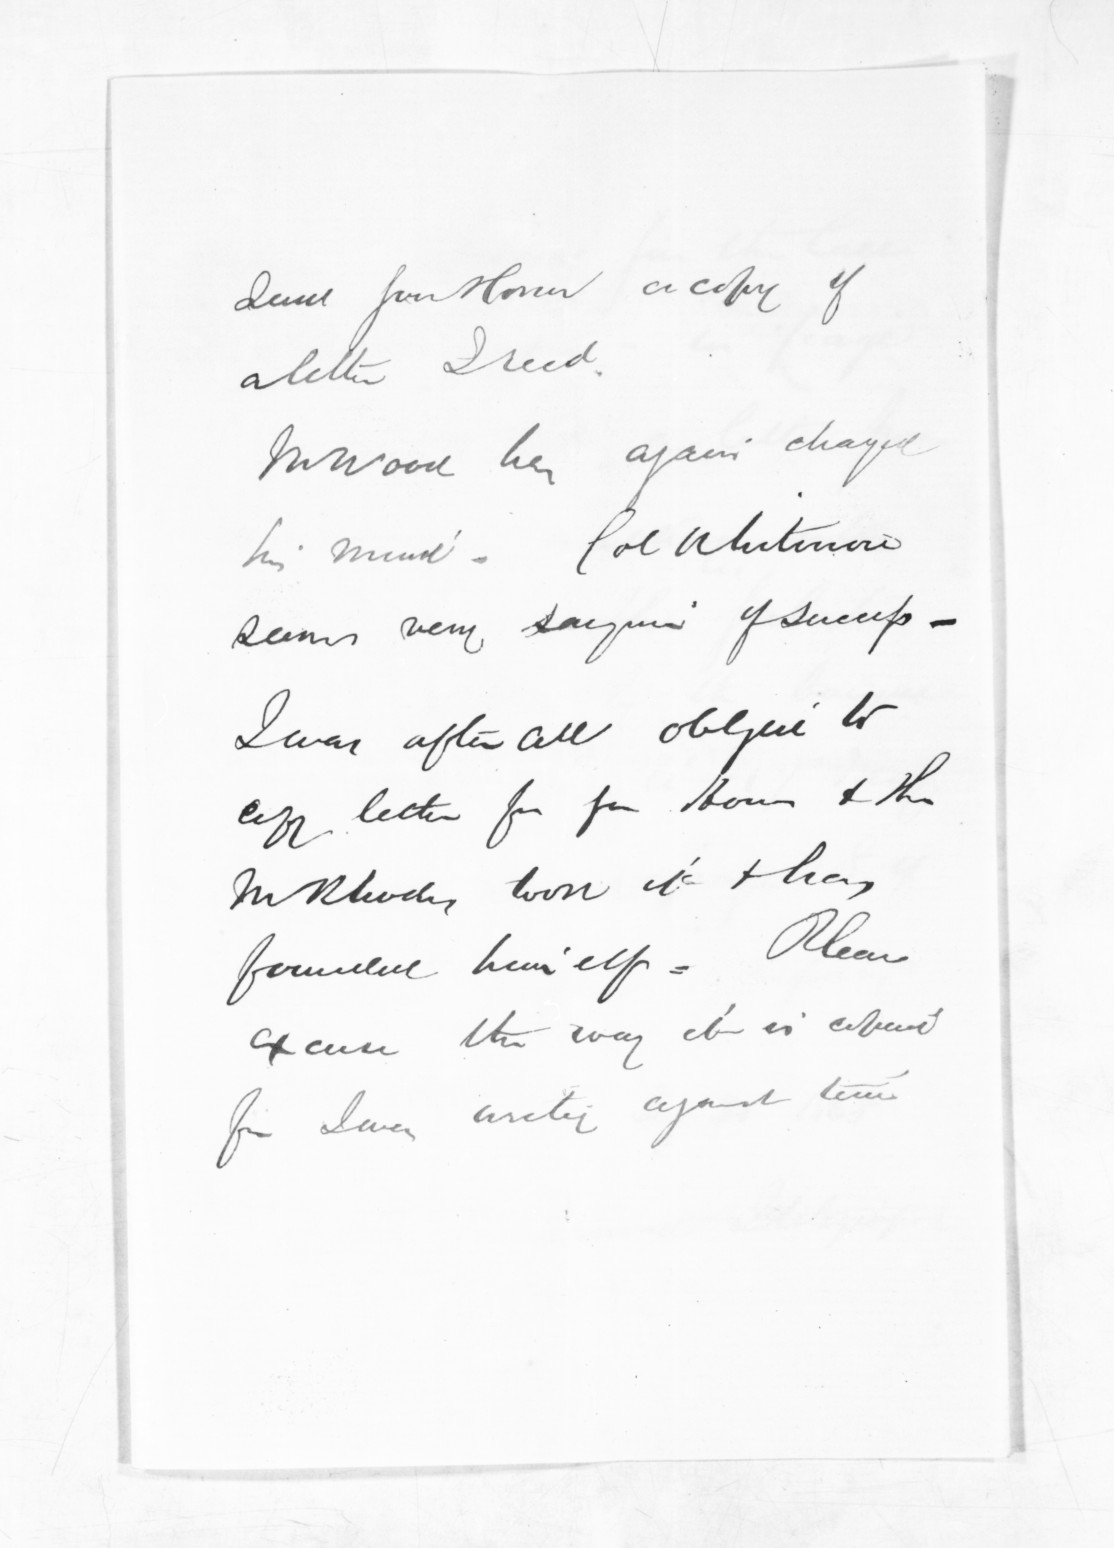 Send your Honor a copy of
a letter I recd.
Mr Wood has again changed
his mind - Col Whitmore
seems very sanguine of success -
I was after all obliged to
copy letter for your Honor & the
Mr Rhodes took it & has
himself = Please
excuse the way it is copied
for I was writing against time